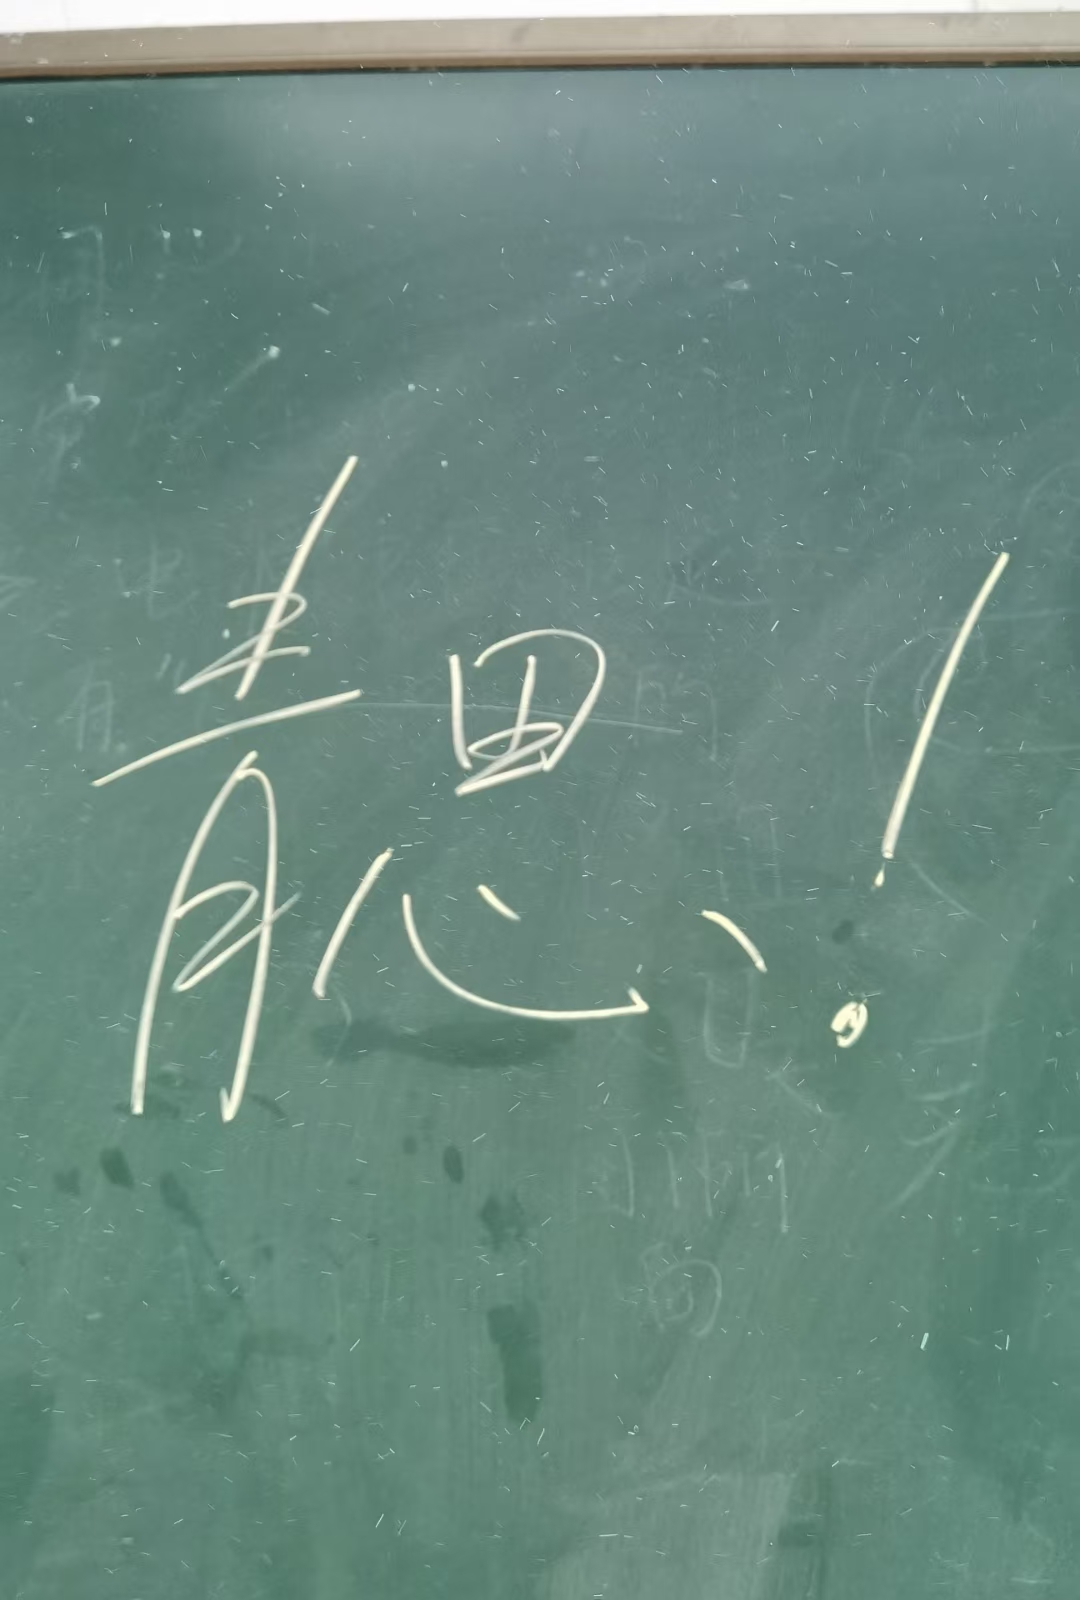 青思！